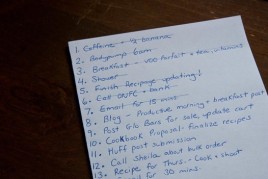 1. Caffeine + ½ banana
2. Bodypump 6am
3. Breakfast - VOO Parfait + tea
4. Shower
5. Finish Recipage updating!
6. Call + bank
7. Email for 15 min
8. Blog - Productive morning + breakfast post
9. Post Glo Bars for sale, update cart
10. Cookbook Proposal: finalize recipes
11. Huff post submission
12. Call Sheila about bulk order
13. Recipe for Thurs. - Cook + shoot
for 30 mins.